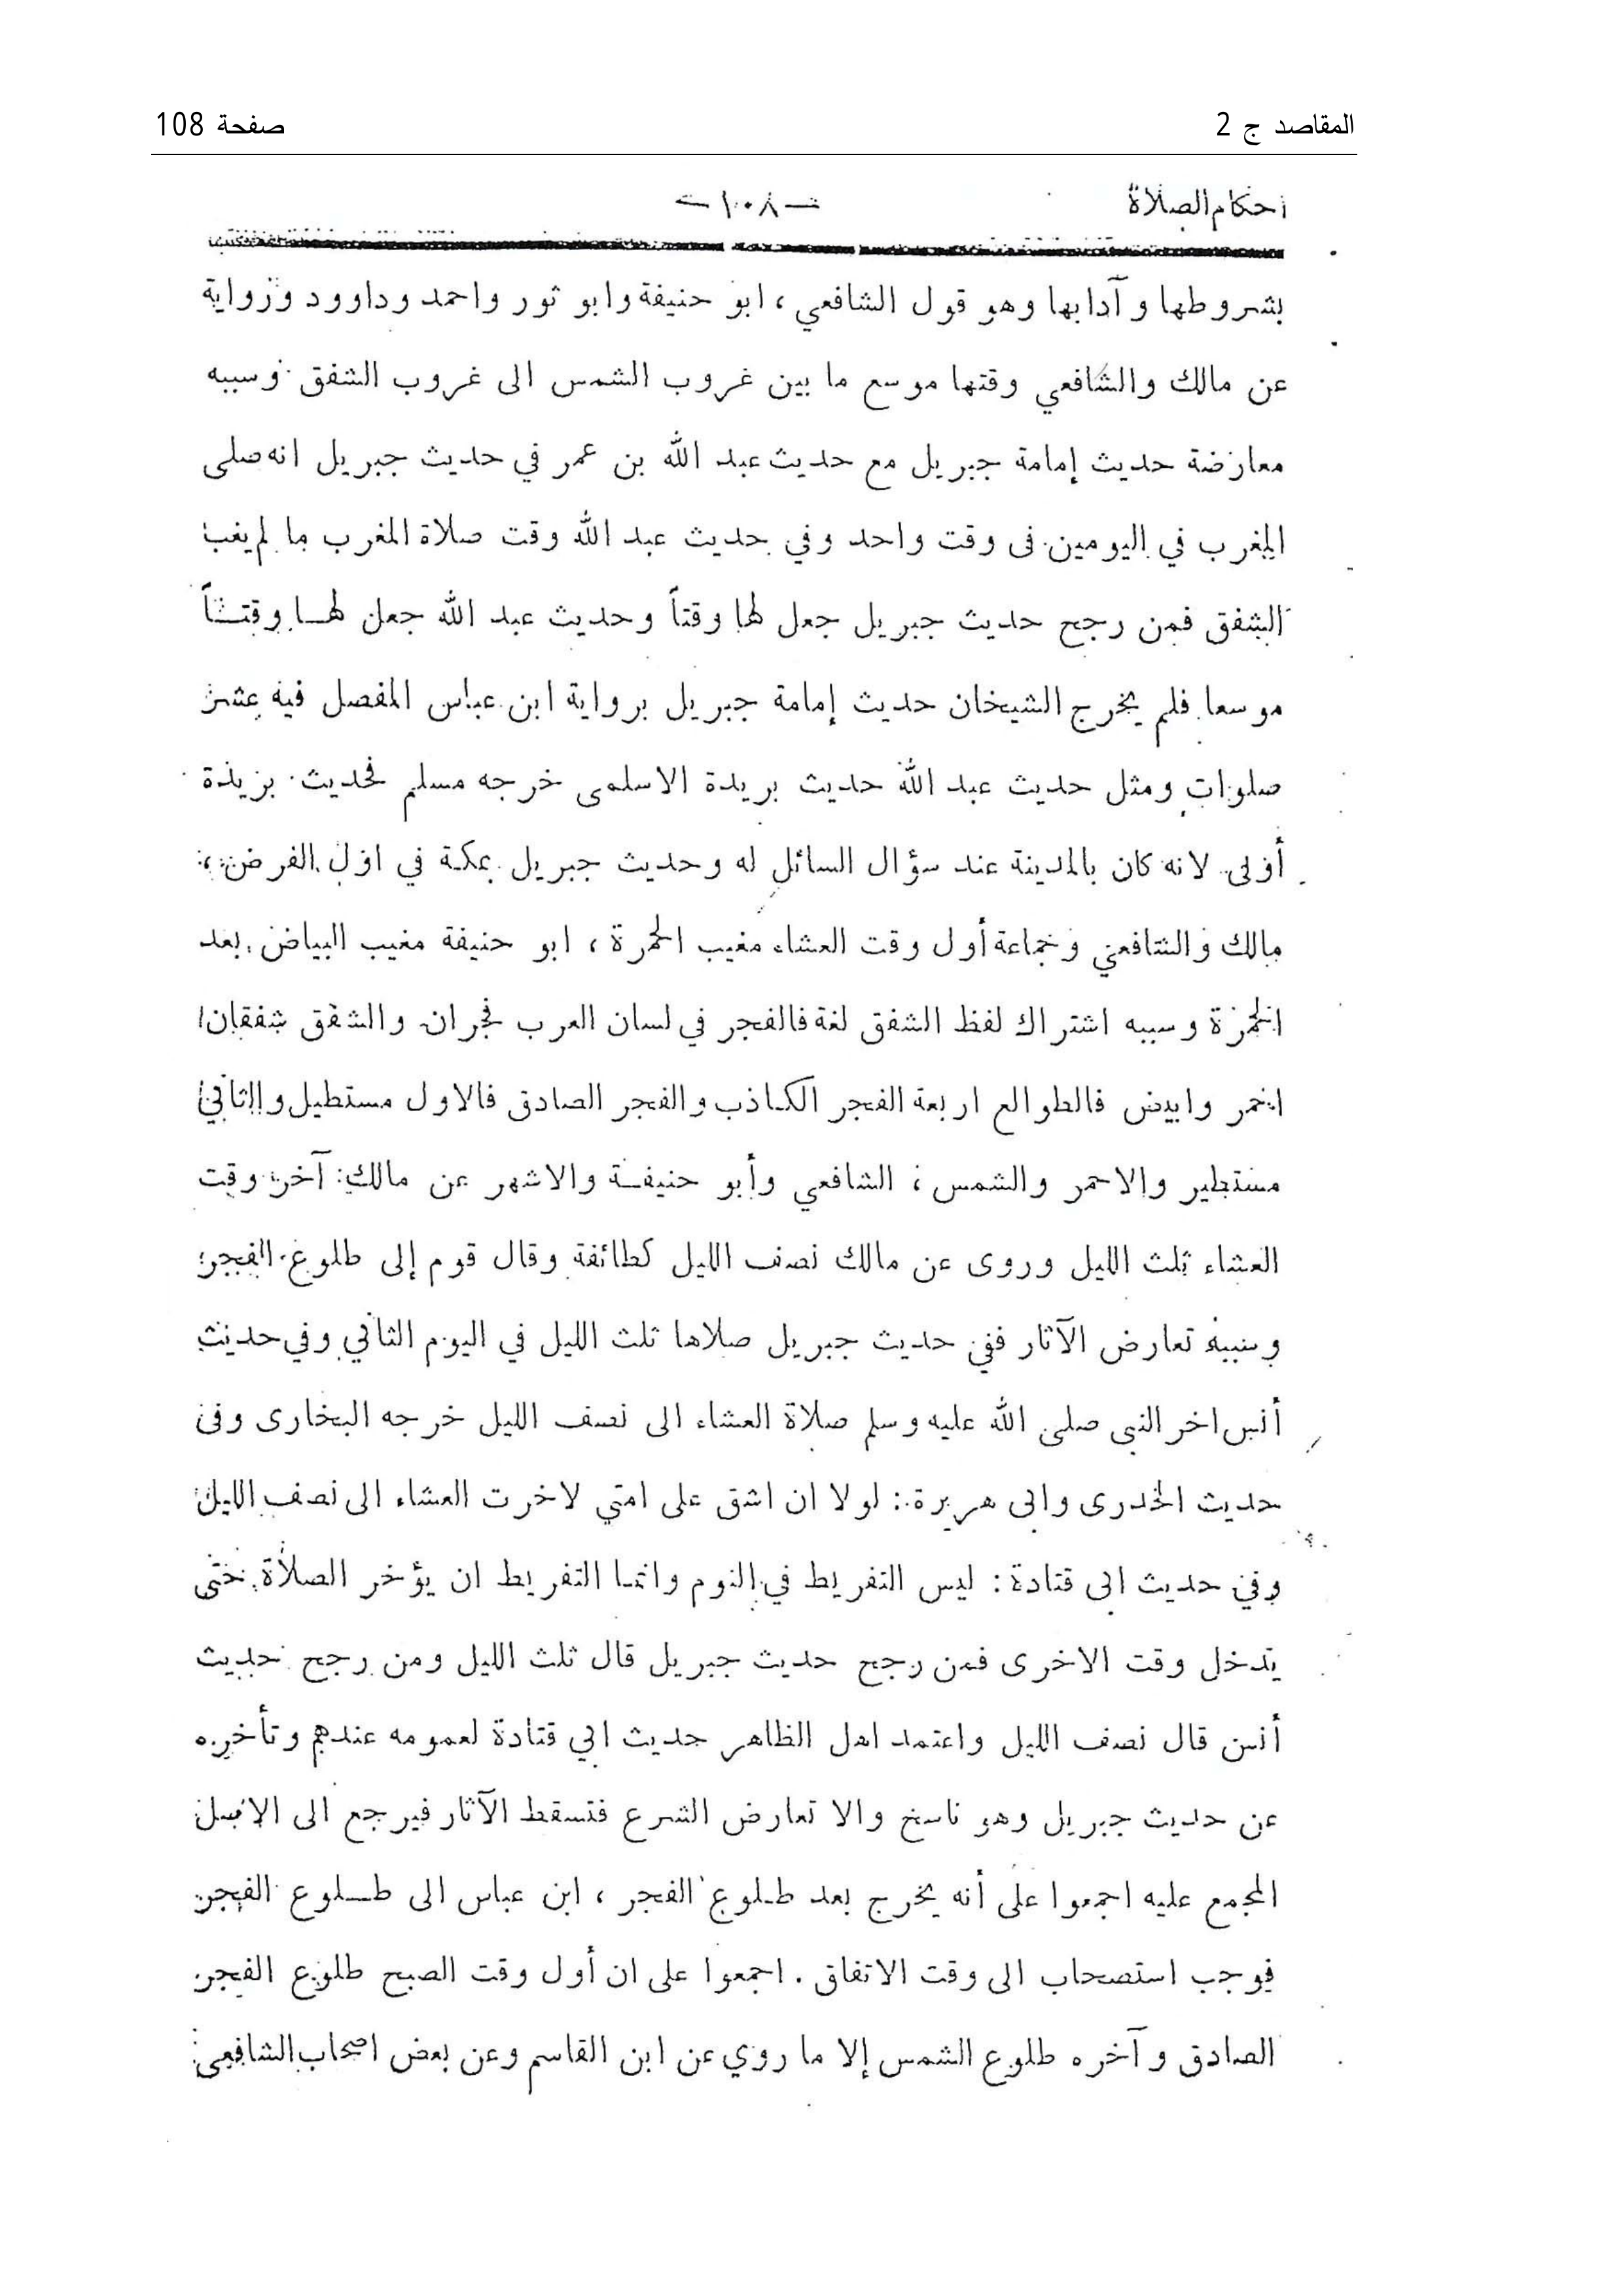 المقاصد ج 2
صفحة 108
أحكام الصلاة
— ١٠٨ —
بشروطها وآدابها وهو قول الشافعي ، ابو حنيفة وابو ثور واحمد وداوود ورواية
عن مالك والشافعي وقتها موسع ما بين غروب الشمس الى غروب الشفق وسببه
معارضة حديث إمامة جبريل مع حديث عبد الله بن عمر في حديث جبريل انه صلى
المغرب في اليومين فى وقت واحد وفي حديث عبد الله وقت صلاة المغرب ما لم يغب
الشفق فمن رجح حديث جبريل جعل لها وقتاً وحديث عبد الله جعل لهـا وقتـاً
موسعا فلم يخرج الشيخان حديث إمامة جبريل برواية ابن عباس المفصل فيه عشر
صلوات ومثل حديث عبد الله حديث بريدة الاسلمى خرجه مسلم فحديث بريدة
أولى لانه كان بالمدينة عند سؤال السائل له وحديث جبريل بمكة في اول الفرض ،
مالك والشافعي وجماعة أول وقت العشاء مغيب الحمرة ، ابو حنيفة مغيب البياض بعد
الحمرة وسببه اشتراك لفظ الشفق لغة فالفجر في لسان العرب فجران والشفق شفقان
احمر وابيض فالطوالع اربعة الفجر الكاذب والفجر الصادق فالاول مستطيل والثاني
مستطير والاحمر والشمس ، الشافعي وأبو حنيفـة والاشهر عن مالك : آخر وقت
العشاء ثلث الليل وروى عن مالك نصف الليل كطائفة وقال قوم إلى طلوع الفجر
وسببه تعارض الآثار ففي حديث جبريل صلاها ثلث الليل في اليوم الثاني وفي حديث
أنس اخر النبى صلى الله عليه وسلم صلاة العشاء الى نصف الليل خرجه البخارى وفى
حديث الخدرى وابى هريرة : لولا ان اشق على امتي لاخرت العشاء الى نصف الليل
وفي حديث ابى قتادة : ليس التفريط في النوم وانمـا التفريط ان يؤخر الصلاة حتى
يدخل وقت الاخرى فمن رجح حديث جبريل قال ثلث الليل ومن رجح حديث
أنس قال نصف الليل واعتمد اهل الظاهر حديث ابي قتادة لعمومه عندهم وتأخره
عن حديث جبريل وهو ناسخ والا تعارض الشرع فتسقط الآثار فيرجع الى الاصل
المجمع عليه اجمعوا على أنه يخرج بعد طـلوع الفجر ، ابن عباس الى طـلوع الفجر
فوجب استصحاب الى وقت الاتفاق . اجمعوا على ان أول وقت الصبح طلوع الفجر
الصادق وآخره طلوع الشمس إلا ما روي عن ابن القاسم وعن بعض اصحاب الشافعى